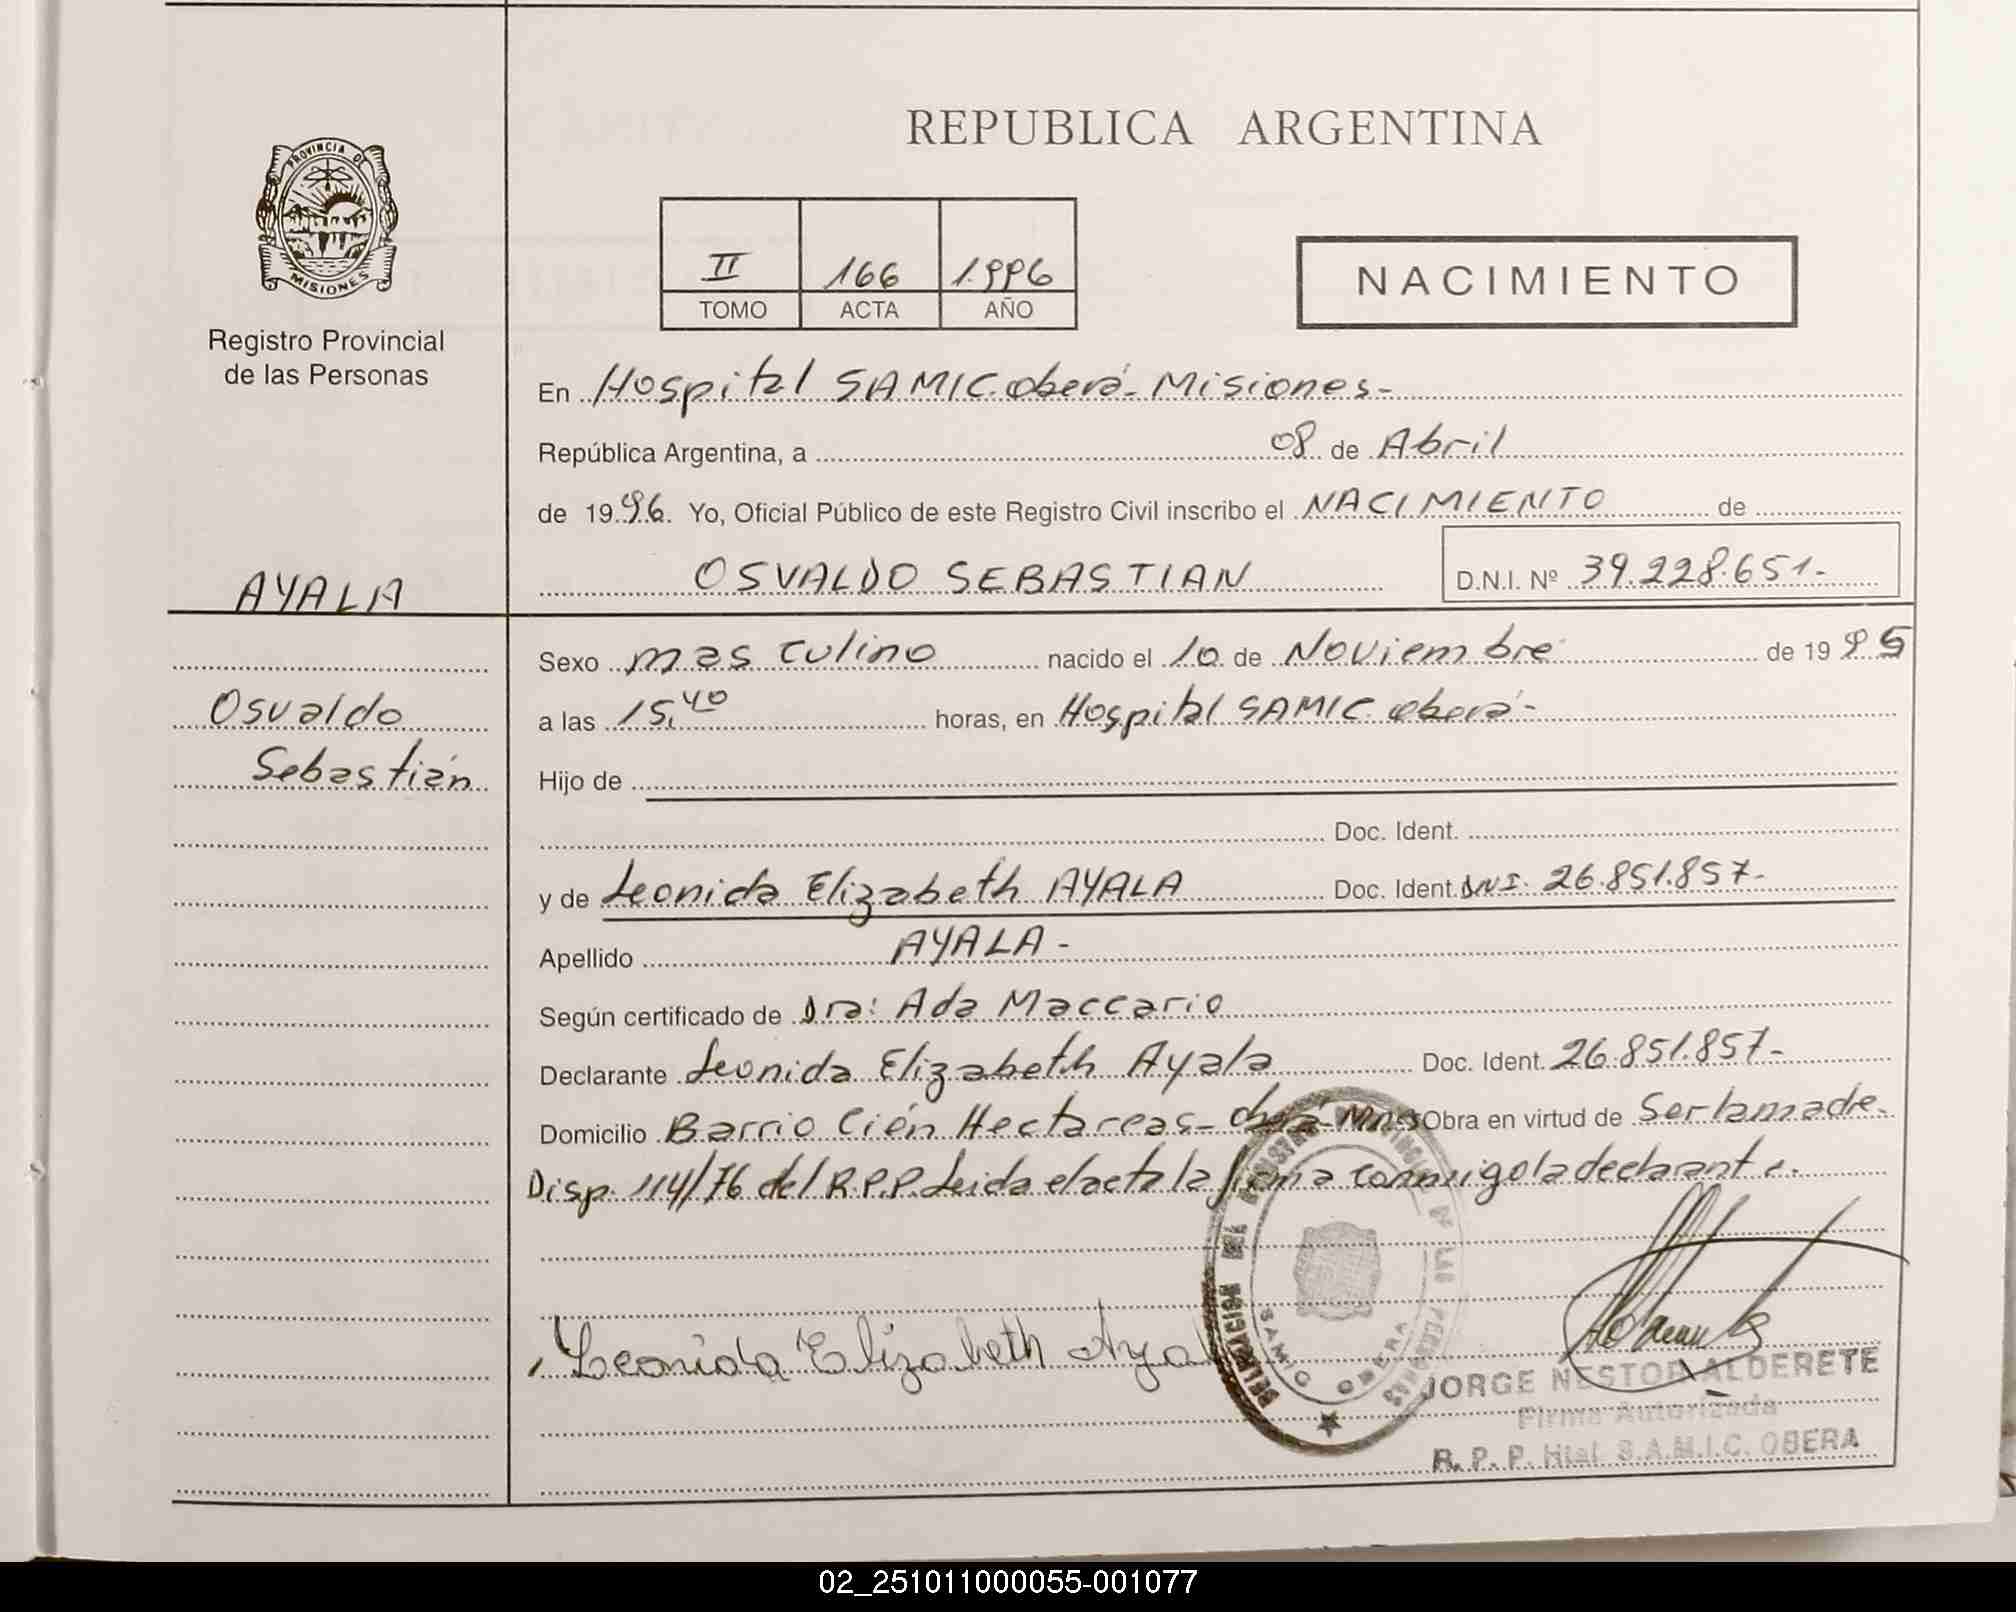 REPUBLICA ARGENTINA
PROVINCIA DE
MISIONES
Registro Provincial
de las Personas
II 166 1.996
TOMO ACTA AÑO
NACIMIENTO
En Hospital SAMIC. oberá - Misiones -
República Argentina, a 08 de Abril
de 1996. Yo, Oficial Público de este Registro Civil inscribo el NACIMIENTO de
OSVALDO SEBASTIAN D.N.I. Nº 39.228.651.-
AYALA
Osvaldo
Sebastián
Sexo masculino nacido el 10 de Noviembre de 1995
a las 15,40 horas, en Hospital SAMIC. oberá -
Hijo de
Doc. Ident.
y de Leonida Elizabeth AYALA Doc. Ident. DNI. 26.851.857.-
Apellido AYALA -
Según certificado de Dra: Ada Maccario
Declarante Leonida Elizabeth Ayala Doc. Ident. 26.851.857.-
Domicilio Barrio Cién Hectareas - Oberá - Mnes Obra en virtud de Ser la madre.
Disp. 114/76 del R.P.P. Leida el acta la firma conmigo la declarante.
Leonida Elizabeth Aya
DELEGACION DEL REGISTRO PROVINCIAL DE LAS PERSONAS
SAMIC OBERA
JORGE NESTOR ALDERETE
Firma Autorizada
R. P. P. Htal. S.A.M.I.C. OBERA
02_251011000055-001077